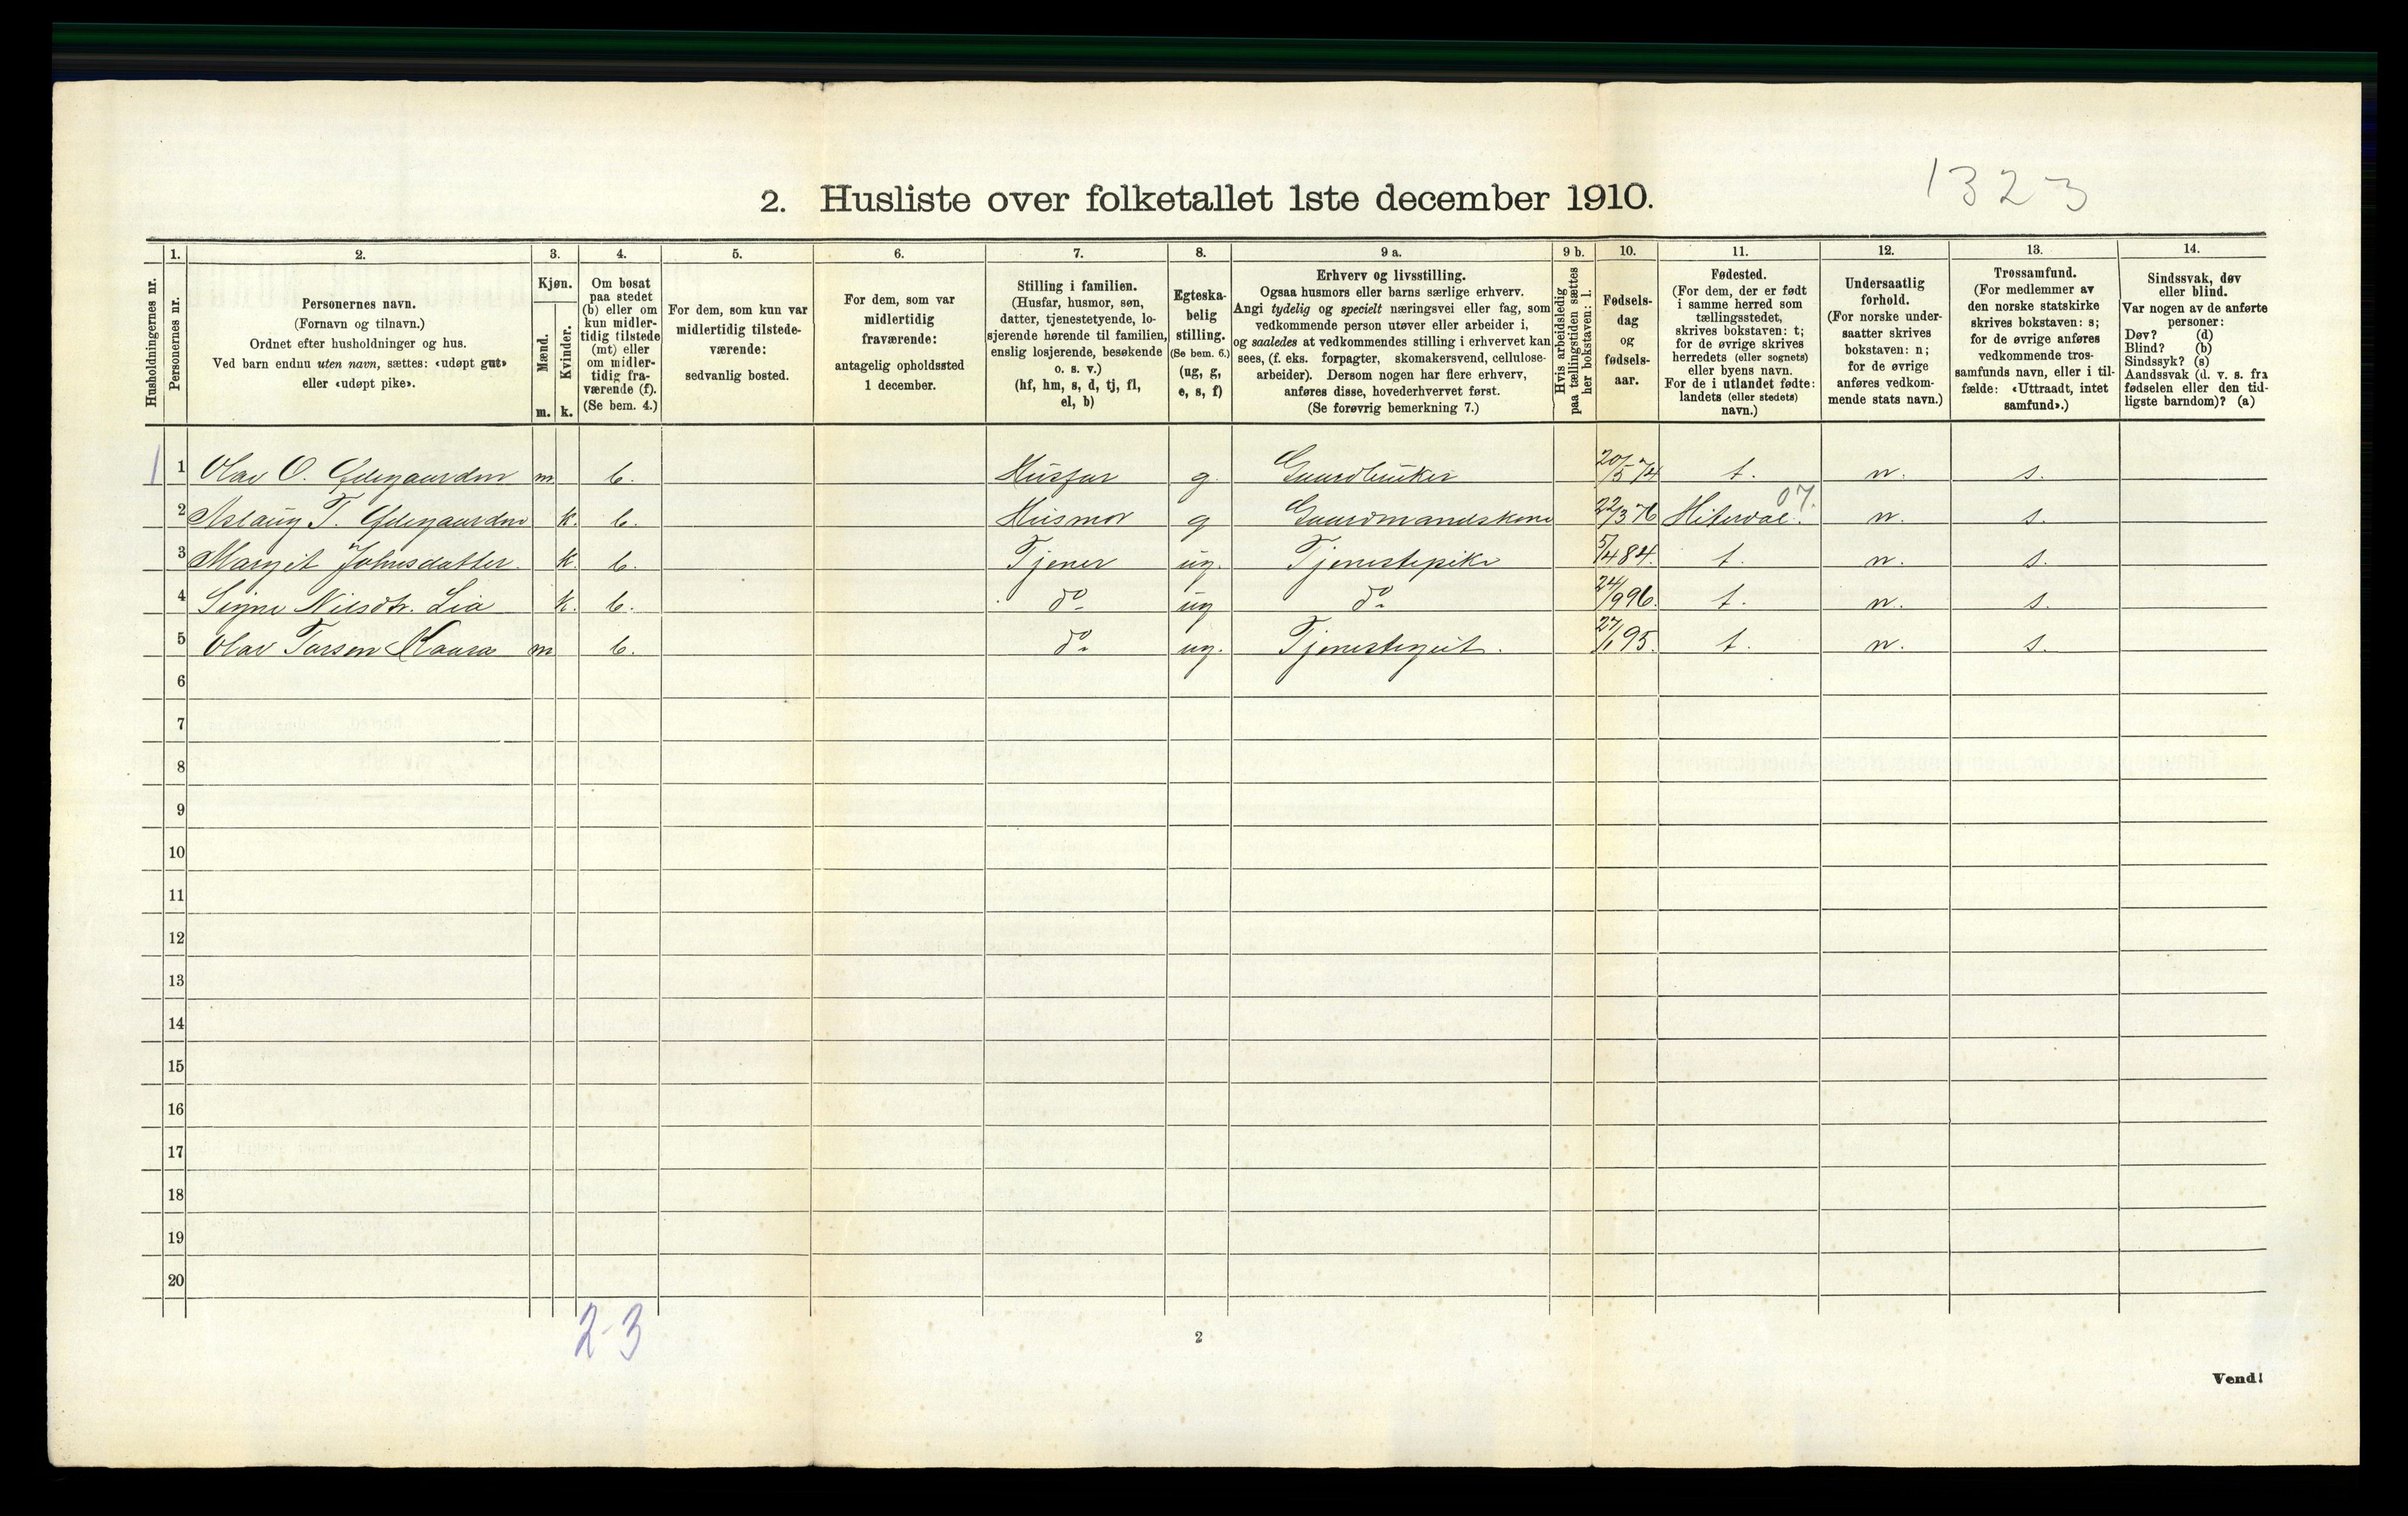 1323
2. Husliste over folketallet 1ste december 1910.
Husholdningernes nr.
1.
Personernes nr.
2.
Personernes navn.
(Fornavn og tilnavn.)
Ordnet efter husholdninger og hus.
Ved barn endnu uten navn, sættes: «udøpt gut»
eller «udøpt pike».
3.
Kjøn.
Mænd.
m.
Kvinder.
k.
4.
Om bosat
paa stedet
(b) eller om
kun midler-
tidig tilstede
(mt) eller
om midler-
tidig fra-
værende (f).
(Se bem. 4.)
5.
For dem, som kun var
midlertidig tilstede-
værende:
sedvanlig bosted.
6.
For dem, som var
midlertidig
fraværende:
antagelig opholdssted
1 december.
7.
Stilling i familien.
(Husfar, husmor, søn,
datter, tjenestetyende, lo-
sjerende hørende til familien,
enslig losjerende, besøkende
o. s. v.)
(hf, hm, s, d, tj, fl,
el, b)
8.
Egteska-
belig
stilling.
(Se bem. 6.)
(ug, g,
e, s, f)
9 a.
Erhverv og livsstilling.
Ogsaa husmors eller barns særlige erhverv.
Angi tydelig og specielt næringsvei eller fag, som
vedkommende person utøver eller arbeider i,
og saaledes at vedkommendes stilling i erhvervet kan
sees, (f. eks. forpagter, skomakersvend, cellulose-
arbeider). Dersom nogen har flere erhverv,
anføres disse, hovederhvervet først.
(Se forøvrig bemerkning 7.)
9 b.
Hvis arbeidsledig
paa tællingstiden sættes
her bokstaven: l.
10.
Fødsels-
dag
og
fødsels-
aar.
11.
Fødested.
(For dem, der er født
i samme herred som
tællingsstedet,
skrives bokstaven: t;
for de øvrige skrives
herredets (eller sognets)
eller byens navn.
For de i utlandet fødte:
landets (eller stedets)
navn.)
12.
Undersaatlig
forhold.
(For norske under-
saatter skrives
bokstaven: n;
for de øvrige
anføres vedkom-
mende stats navn.)
13.
Trossamfund.
(For medlemmer av
den norske statskirke
skrives bokstaven: s;
for de øvrige anføres
vedkommende tros-
samfunds navn, eller i til-
fælde: «Uttraadt, intet
samfund».)
14.
Sindssvak, døv
eller blind.
Var nogen av de anførte
personer:
Døv? (d)
Blind? (b)
Sindssyk? (s)
Aandssvak (d. v. s. fra
fødselen eller den tid-
ligste barndom)? (a)
1 1 Olav O. Ødegaarden m b. Husfar g. Gaardbruker 20/5 74 t. n. s.
07.
2 Aslaug T. Ødegaarden k. b. Husmor g Gaardmandskone 22/3 76 Hiterdal. n. s.
3 Margit Johnsdatter. k. b. Tjener ug. Tjenestepike 5/4 84. t. n. s.
4 Signe Nilsdtr. Lia k. b. do ug do 24/9 96. t. n. s.
5 Olav Tarsen m b. do ug. Tjenestegut. 27/1 95. t. n. s.
6
7
8
9
10
11
12
13
14
15
16
17
18
19
20
2-3
2
Vend!